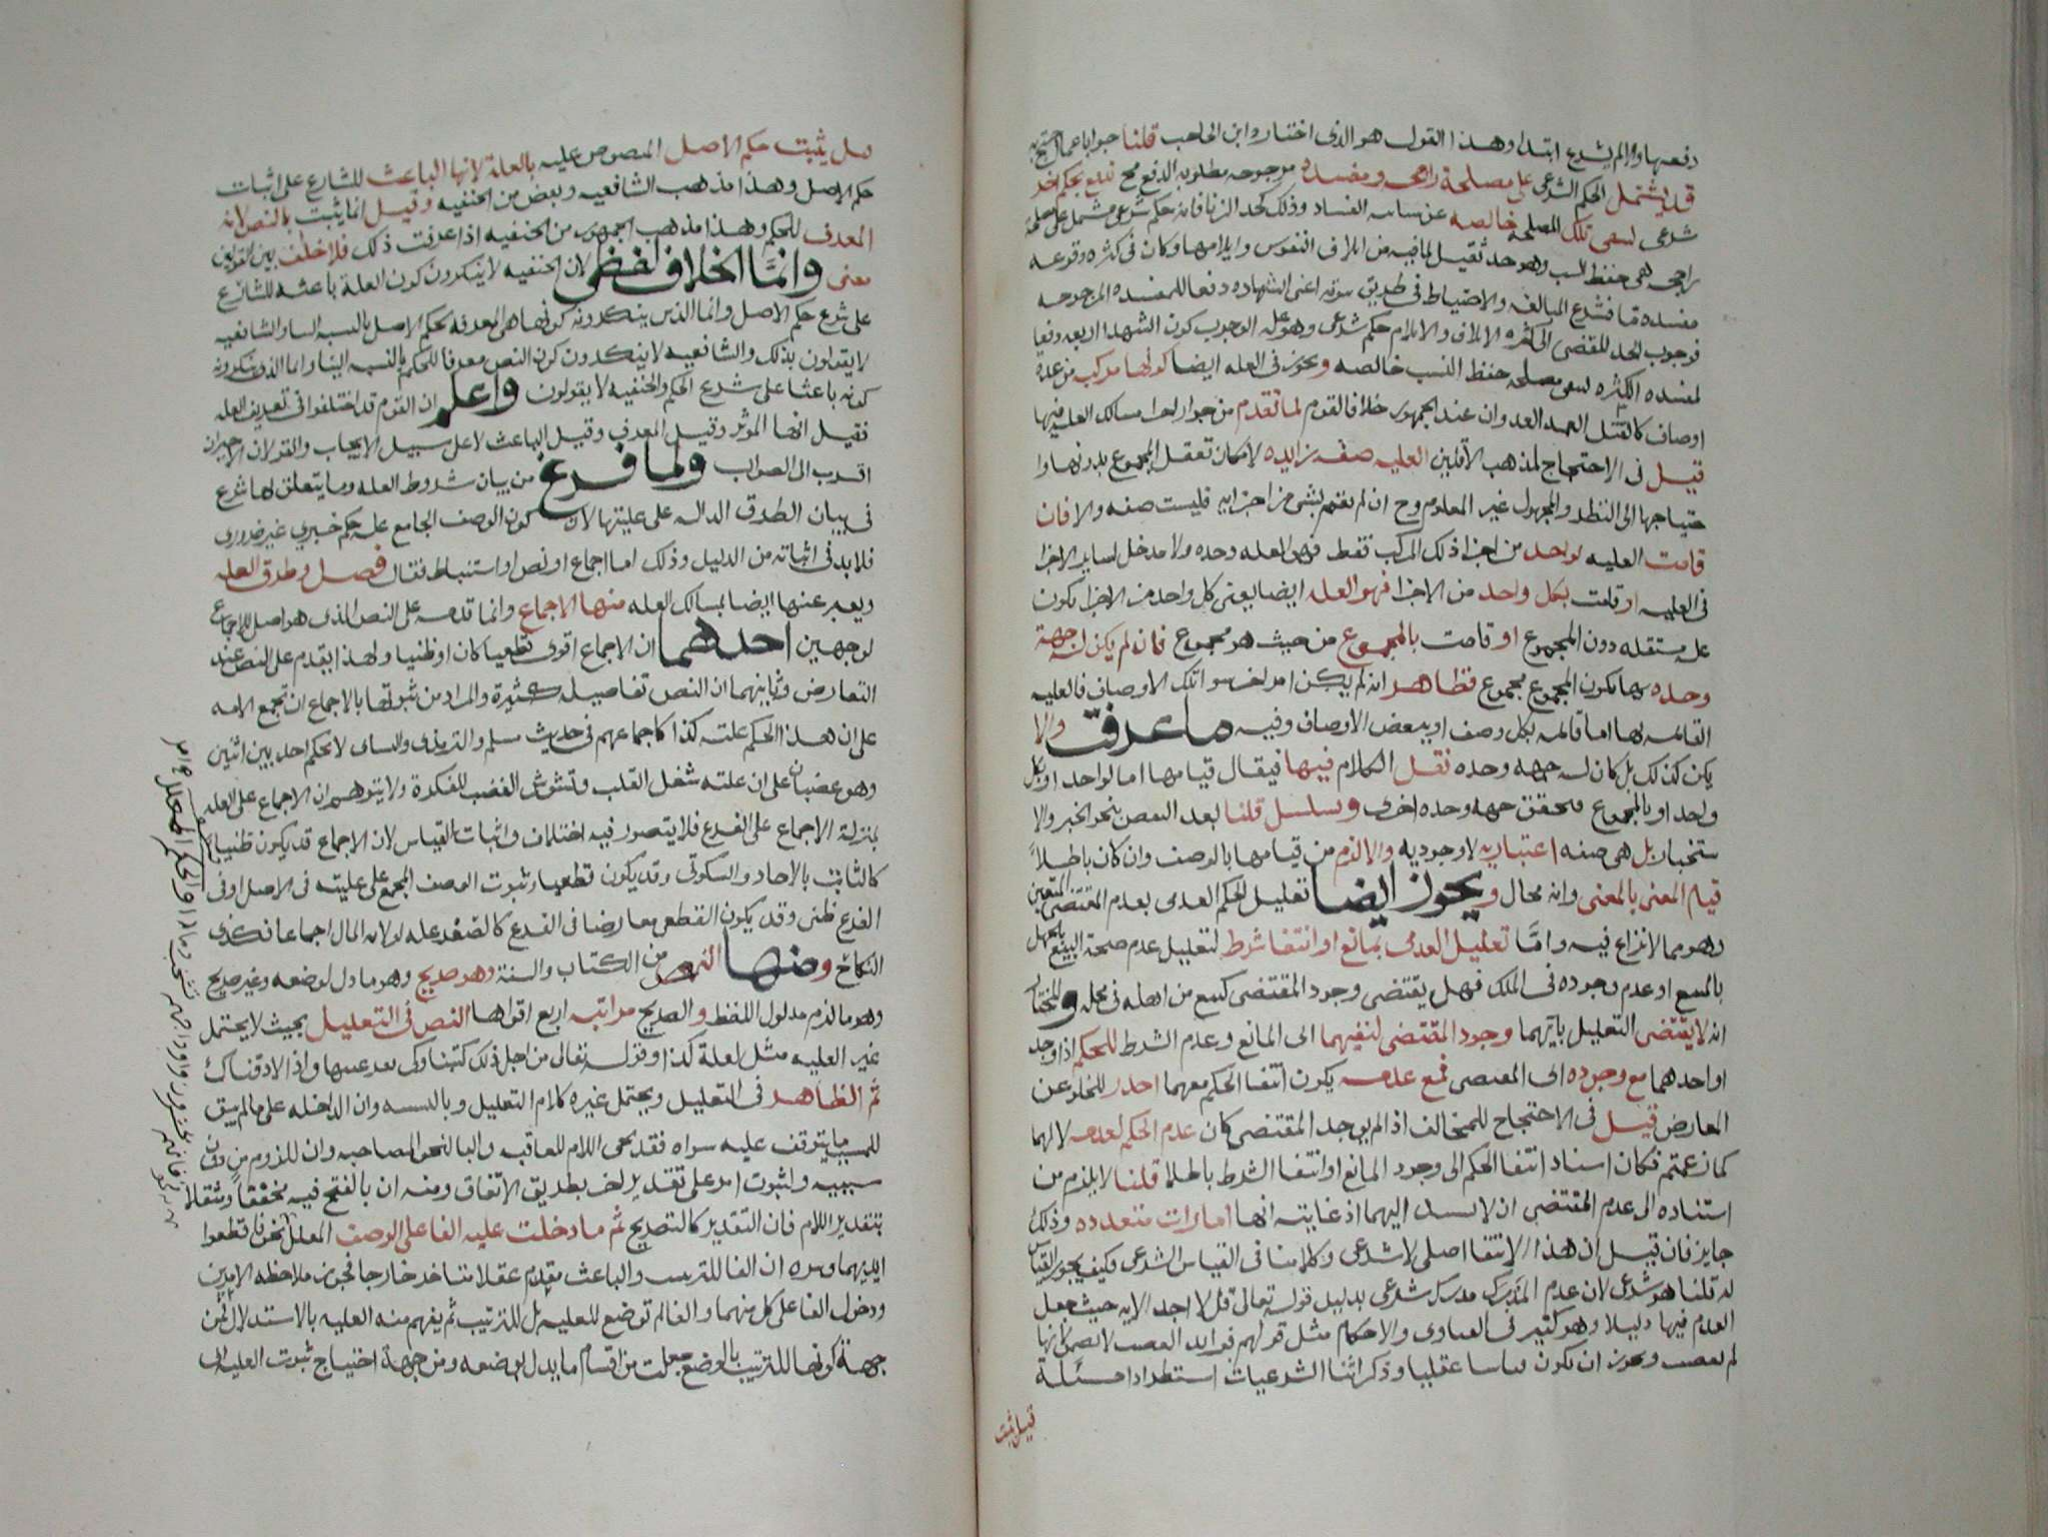 دفعها والم يشرع ابتداء وهذا القول هو الذى اختاره ابن الحاجب قلنا جوابا عما احتج به
قد يشتمل الحكم الشرعى على مصلحة راجحه ومفسده مرجوحه مطلوبه الدفع فتدفع بحكم اخر
شرعى لتبقى تلك المصلحه خالصه عن شايبه الفساد وذلك كحد الزنا فانه حكم شرعى مشتمل على مصلحه
راجحه هى حفظ النسب وهو حد ثقيل لما فيه من اتلاف النفوس وايلامها وكان فى كثره وقوعه
مفسده ما فشرع المبالغه والاحتياط فى طريق ثبوته اعنى الشهاده دفعا للمفسده المرجوحه
فوجوب الحد المفضى الى كثره الاتلاف والايلام حكم شرعى وهو عله الوجوب كون الشهدا اربعه دفعا
لمفسده الكثره لتبقى مصلحه حفظ النسب خالصه ويجوز فى العله ايضا كونها مركب من عده
اوصاف كالقتل العمد العدوان عند الجمهور خلافا لقوم لما تقدم من جواز اجرا مسالك العليه فيها
قيل فى الاحتجاج لمذهب الاقلين العليه صفه زايده لامكان تعقل المجموع بدونها وا
حتياجها الى النظر والمجهول غير المعلوم وح ان لم تقم بشى من اجزايه فليست صفه والا فان
قامت العليه لواحد من اجزا ذلك المركب فقط فهى العله وحده ولا مدخل لساير الاجزا
فى العليه او قامت بكل واحد من الاجزا فهو العله ايضا يعنى كل واحد من الاجزا يكون
عله مستقله دون المجموع او قامت بالمجموع من حيث هو مجموع فان لم يكن له جهة
وحده بها يكون المجموع مجموع فظاهر انه لم يكن امر اخر سوا تلك الاوصاف فالعليه
القائمه بها اما قائمه بكل وصف او ببعض الاوصاف وفيه ما عرفت والا
يكن كذلك بل كان له جهه وحده نقل الكلام فيها فيقال قيامها اما لواحد او بكل
واحد او بالمجموع فتحقق جهه وحده اخرى وتسلسل قلنا بعد النقض بنحو الخبر والا
ستخبار بل هى صفه اعتباريه لا وجوديه والا لزم من قيامها بالوصف وان كان باطلاً
قيام المعنى بالمعنى وانه محال ويجوز ايضا تعليل الحكم العدمى بعدم المقتضى المتعين
وهو مما لا نزاع فيه واما تعليل العدمى بمانع او انتفا شرط لتعليل عدم صحة البيع بالجهل
بالمبيع او عدم وجوده فى الملك فهل يقتضى وجود المقتضى كبيع من اهله فى محله والمختار
انه لا يقتضى التعليل بايهما وجود المقتضى لنفيهما اى المانع وعدم الشرط للحكم اذا وجد
او احدهما مع وجوده اى المقتضى فمع عدمه يكون انتفا الحكم معهما اجدر للخلو عن
المعارض قيل فى الاحتجاج للمخالف اذ الم يوجد المقتضى كان عدم الحكم لعدمه لا لهما
كما زعمتم فكان اسناد انتفا الحكم الى وجود المانع او انتفا الشرط باطلا قلنا لا يلزم من
استناده الى عدم المقتضى ان لا يستند اليهما اذ غايته انها امارات متعدده وذلك
جايز فان قيل ان هذا الانتفا اصلى لا شرعى وكلامنا فى القياس الشرعى فكيف يجوز القياس
له قلنا هو شرعى لان عدم المدرك مدرك شرعى بدليل قوله تعالى قل لا اجد الايه حيث جعل
العدم فيها دليلا وهو كثير فى الفتاوى والاحكام مثل قولهم فوايد الغصب لا تضمن لانها
لم تغصب ويجوز ان يكون قياسا عقليا وذكر اثنا الشرعيات استطرادا مسئلة
قيل يثبت
هل يثبت حكم الاصل المنصوص عليه بالعلة لانها الباعث للشارع على اثبات
حكم الاصل وهذا مذهب الشافعيه وبعض من الحنفيه وقيل انما يثبت بالنص لانه
المعرف للحكم وهذا مذهب الجمهور من الحنفيه اذا عرفت ذلك فلا خلف بين القولين
معنى وانما الخلاف لفظى لان الحنفيه لا ينكرون كون العلة باعثه للشارع
على شرع حكم الاصل وانما الذين ينكرونه كونها هى المعرفه بحكم الاصل بالنسبه الينا والشافعيه
لا يقولون بذلك والشافعيه لا ينكرون كون النص معرفا للحكم بالنسبه الينا وانما الذى ينكرونه
كونه باعثا على شرع الحكم والحنفيه لا يقولون واعلم ان القوم قد اختلفوا فى تعريف العله
فقيل انها الموثر وقيل المعرف وقيل الباعث لا على سبيل الايجاب والقولان الاخيران
اقرب الى الصواب ولما فرغ من بيان شروط العله وما يتعلق بها شرع
فى بيان الطرق الداله على عليتها لان كون الوصف الجامع عله حكم خبري غير ضروري
فلا بد فى اثباته من الدليل وذلك اما اجماع او نص او استنباط فقال فصل وطرق العله
ويعبر عنها ايضا بمسالك العله منها الاجماع وانما قدمه على النص الذى هو اصل للاجماع
لوجهين احدهما ان الاجماع اقوى قطعيا كان او ظنيا ولهذا يقدم على النص عند
التعارض وثانيهما ان النص تفاصيله كثيرة والمراد من ثبوتها بالاجماع ان تجمع الامه
على ان هذا الحكم علته كذا كاجماعهم فى حديث مسلم والترمذى والنساى لا يحكم احد بين اثنين
وهو غضبان على ان علته شغل القلب وتشوش الغضب للفكرة ولا يتوهم ان الاجماع على العله
بمنزلة الاجماع على الفرع فلا يتصور فيه اختلاف واثبات القياس لان الاجماع قد يكون ظنيا
كالثابت بالاحاد والسكوتى وقد يكون قطعيا وثبوت الوصف المجمع على عليته فى الاصل او فى
الفرع ظنى وقد يكون القطعى معارضا فى الفرع كالصغر عله لولايه المال اجماعا فكذى
النكاح ومنها النص من الكتاب والسنة وهو صريح وهو ما دل لوضعه وغير صريح
وهو ما لزم مدلول اللفظ والصريح مراتبه اربع اقواها النص فى التعليل بحيث لا يحتمل
غير العليه مثل لعلة كذا وقوله تعالى من اجل ذلك كتبنا وكى تقر عينها واذا لاذقناك
ثم الظاهر فى التعليل ويحتمل غيره كلام التعليل وباالسببيه وان الداخله على ما لم يبق
للمسبب ما يتوقف عليه سواه فقد تجى اللام للعاقبه والبا لنحو المصاحبه وان للزوم من دون
سببيه ولثبوت امر على تقدير اخر بطريق الاتفاق ومنه ان بالفتح فيه مخففاً ومثقلاً
بتقدير اللام فان التقدير كالتصريح ثم ما دخلت عليه الفا على الوصف المعلل نحو فاقطعوا
ايديهما وسره ان الفا للترتيب والباعث مقدم عقلا متاخر خارجا فجوز ملاحظه الامرين
ودخول الفا على كل منهما والفا لم توضع للعليه بل للترتيب ثم يفهم منه العليه بالاستدلال فمن
جهة كونها للترتيب بالوضع جعلت من اقسام ما يدل بوضعه ومن جهة احتياج ثبوت العليه الى